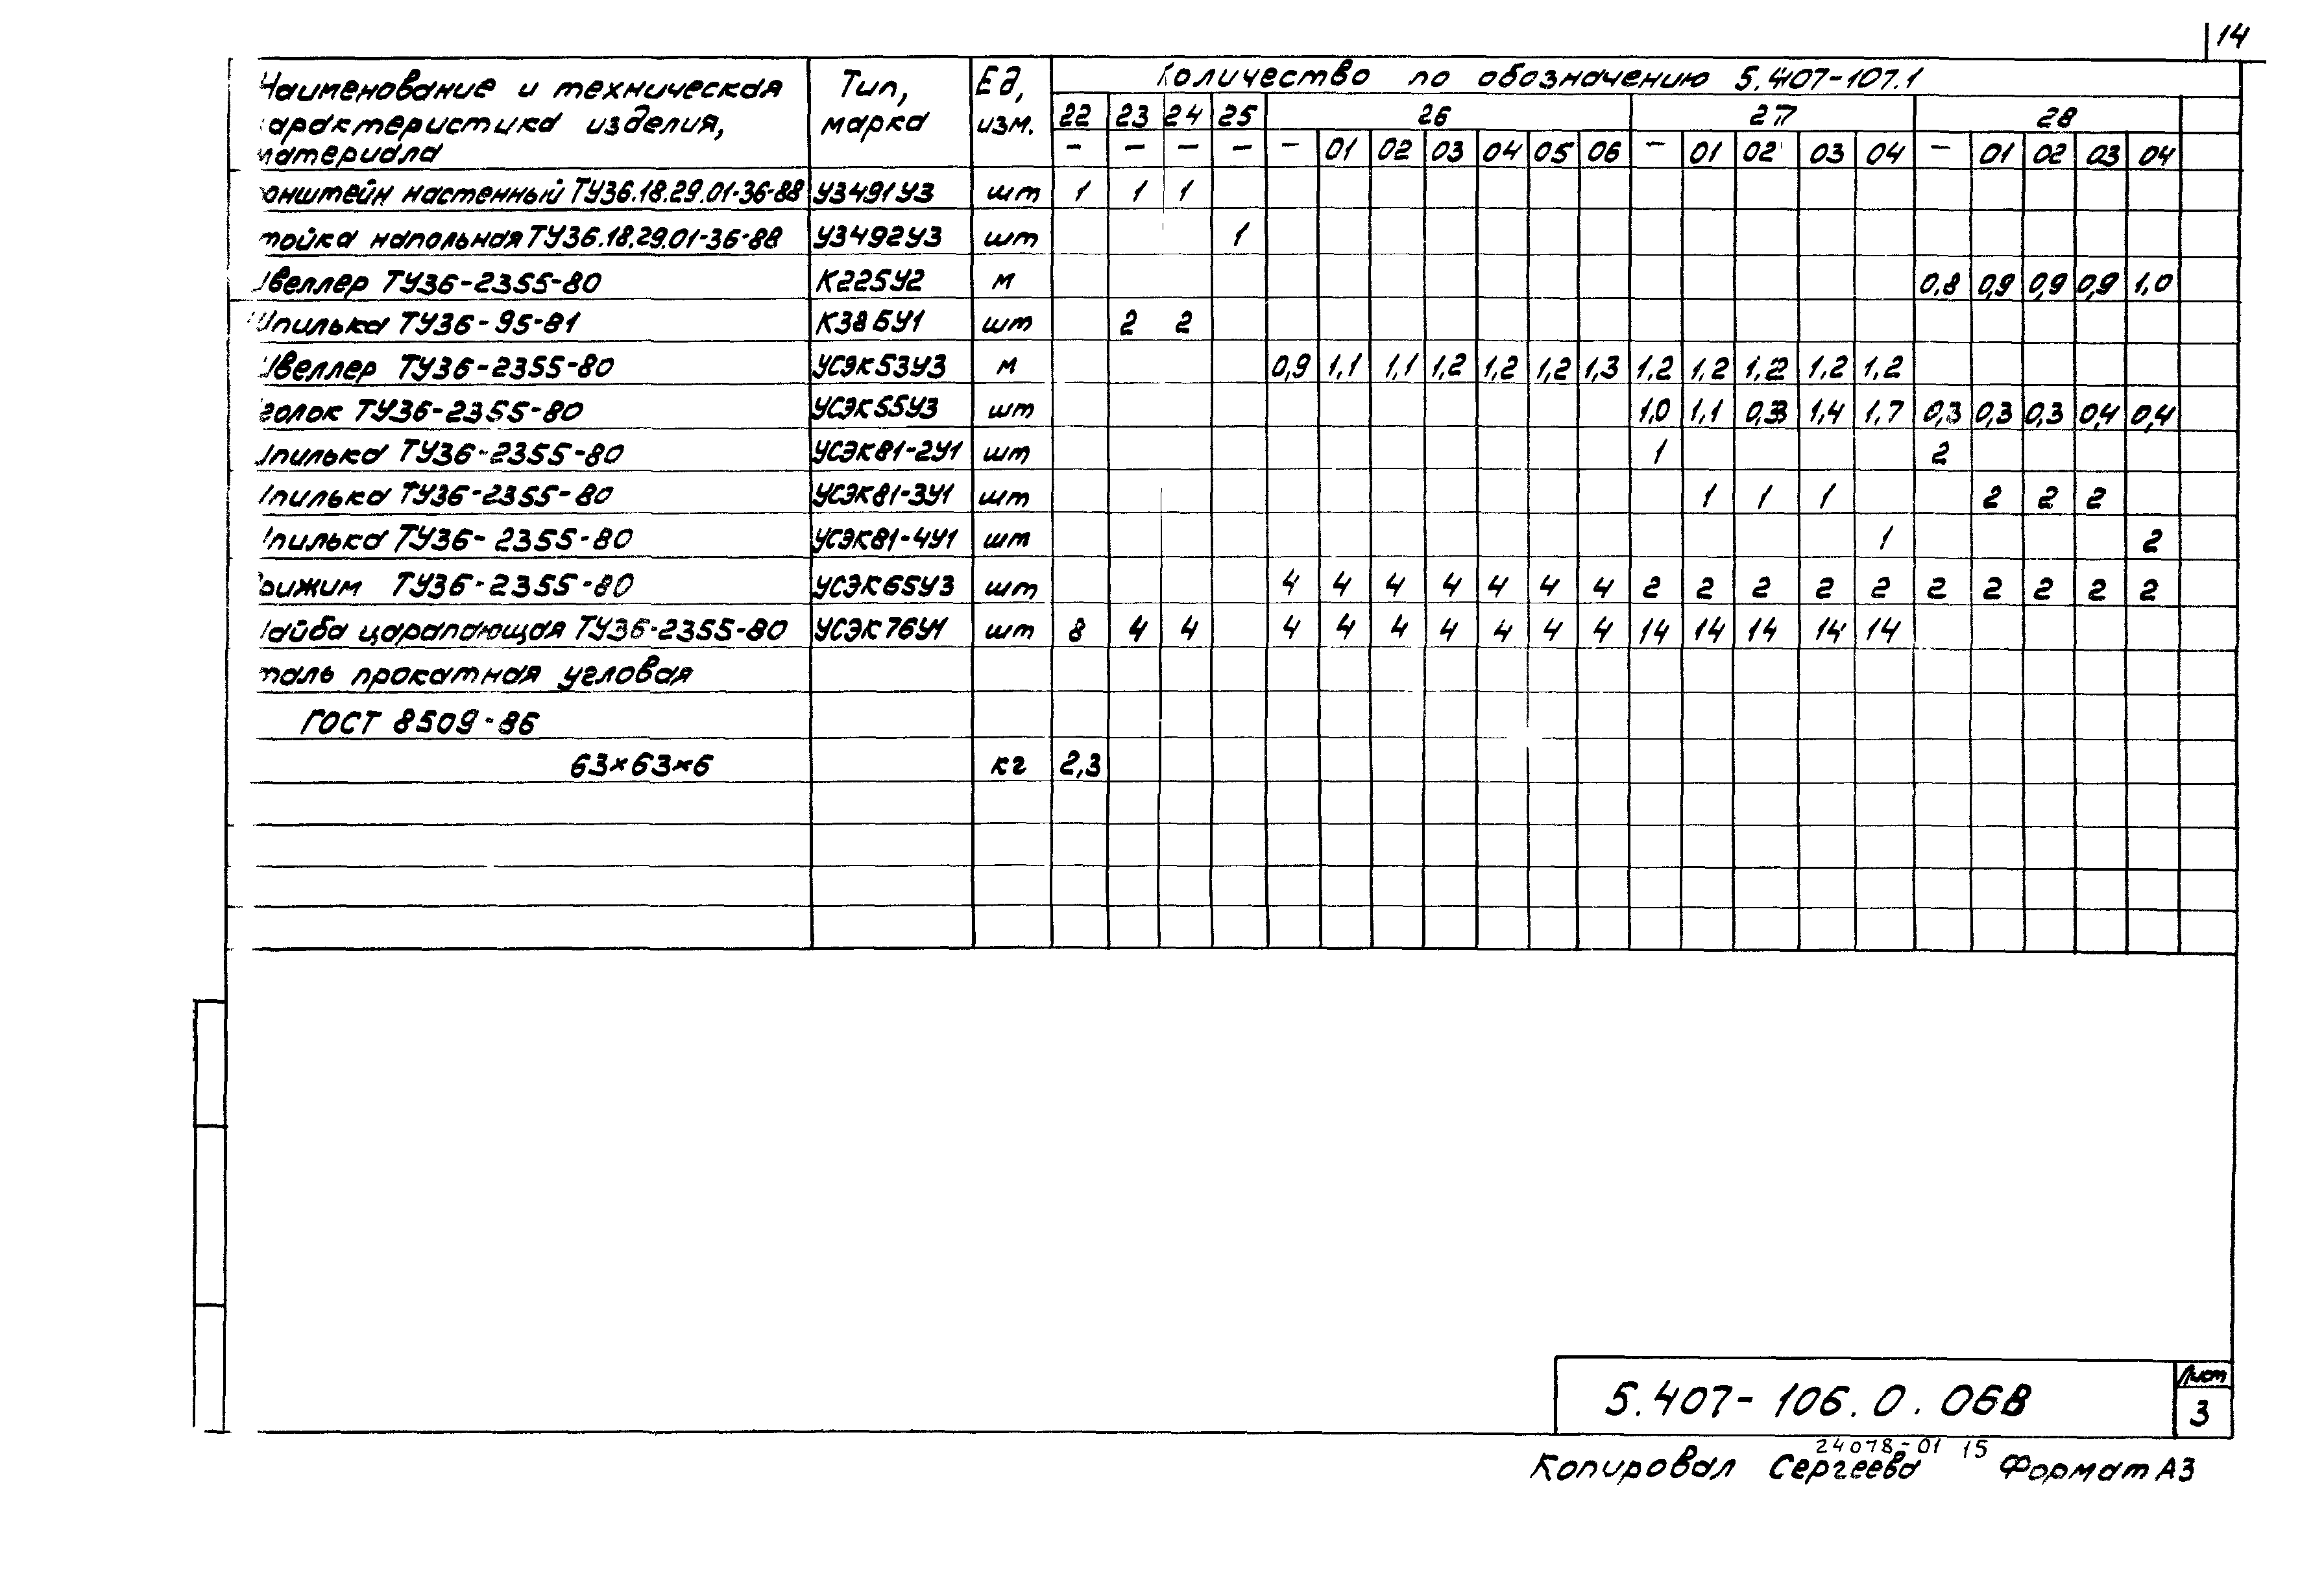 14
Наименование и техническая Тип, Ед, Количество по обозначению 5.407-107.1
характеристика изделия, марка изм. 22 23 24 25 26 27 28
материала - - - - - 01 02 03 04 05 06 - 01 02 03 04 - 01 02 03 04
онштейн настенный ТУ36.18.29.01-36-88 У3491У3 шт 1 1 1
тойка напольная ТУ36.18.29.01-36-88 У3492У3 шт 1
Швеллер ТУ36-2355-80 К225У2 м 0,8 0,9 0,9 0,9 1,0
Шпилька ТУ36-95-81 К386У1 шт 2 2
Швеллер ТУ36-2355-80 УСЭК53У3 м 0,9 1,1 1,1 1,2 1,2 1,2 1,3 1,2 1,2 1,2 1,2 1,2
голок ТУ36-2355-80 УСЭК55У3 шт 1,0 1,1 0,3 1,4 1,7 0,3 0,3 0,3 0,4 0,4
Шпилька ТУ36-2355-80 УСЭК81-2У1 шт 1 2
Шпилька ТУ36-2355-80 УСЭК81-3У1 шт 1 1 1 2 2 2
Шпилька ТУ36-2355-80 УСЭК81-4У1 шт 1 2
рижим ТУ36-2355-80 УСЭК65У3 шт 4 4 4 4 4 4 4 2 2 2 2 2 2 2 2 2 2
Шайба царапающая ТУ36-2355-80 УСЭК76У1 шт 8 4 4 4 4 4 4 4 4 4 14 14 14 14 14
таль прокатная угловая
ГОСТ 8509-86
63×63×6 кг 2,3
5.407-106.0.06В Лист
3
24078-01 15
Копировал Сергеева Формат А3